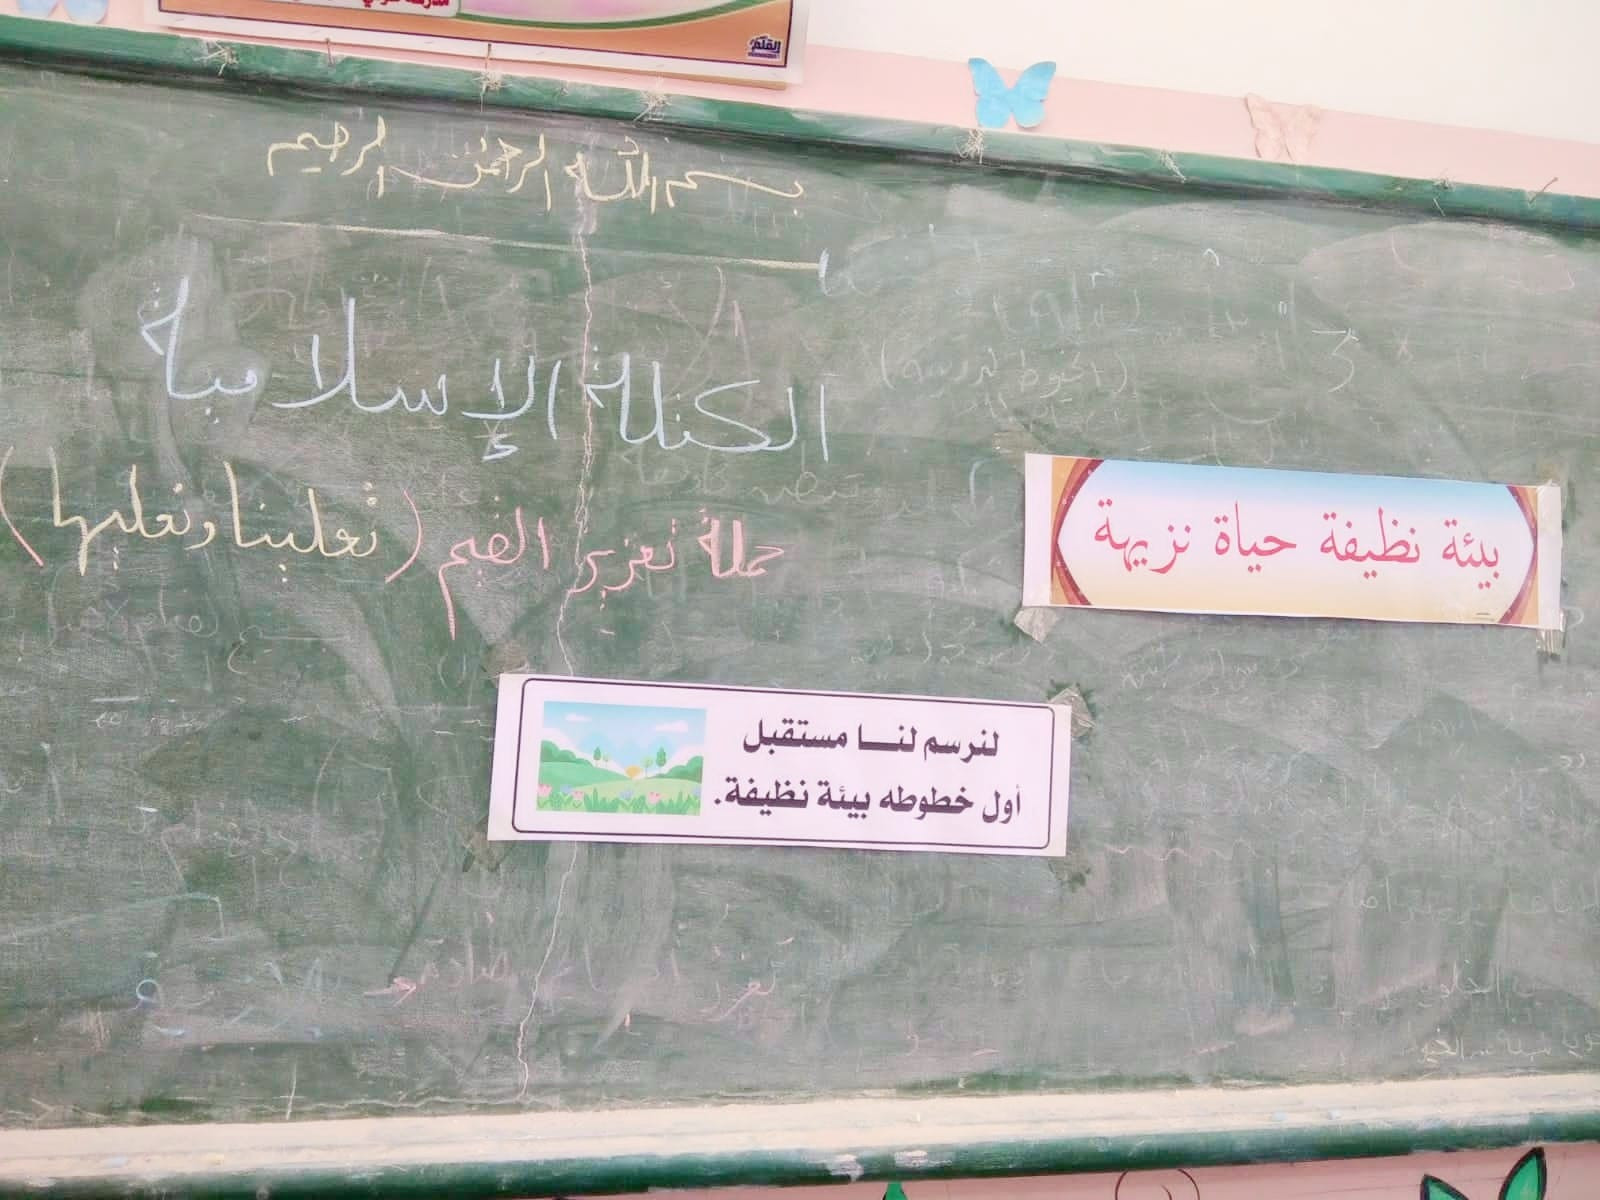 القلم
بسم الله الرحمن الرحيم
الكتلة الإسلامية
حملة تعزيز القيم (تعلينا ونعليها)
بيئة نظيفة حياة نزيهة
لنرسم لنا مستقبل
أول خطوطه بيئة نظيفة.